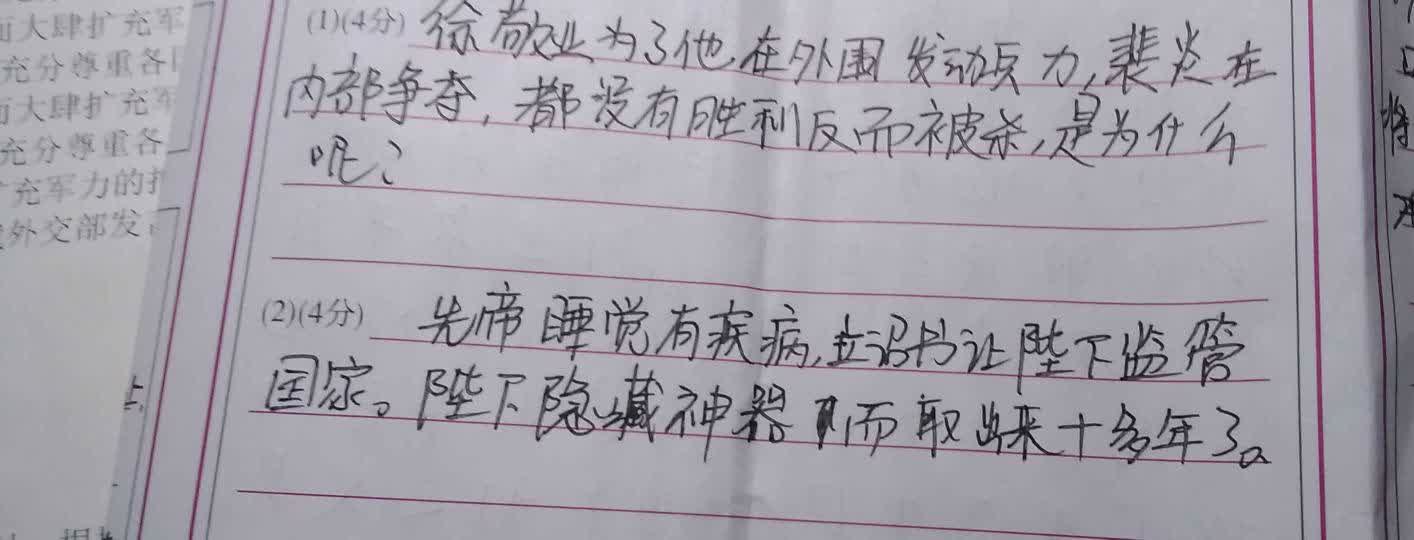 而大肆扩充军
充分尊重各
而大肆扩充军
充分尊重各
充军力的扌
外交部发
(1)(4分) 徐敬业为了他在外围发动兵力,裴炎在
内部争夺,都没有胜利反而被杀,是为什么
呢?
(2)(4分) 先帝睡觉有疾病,立诏书让陛下监管
国家。陛下隐藏神器 而取出来十多年了。